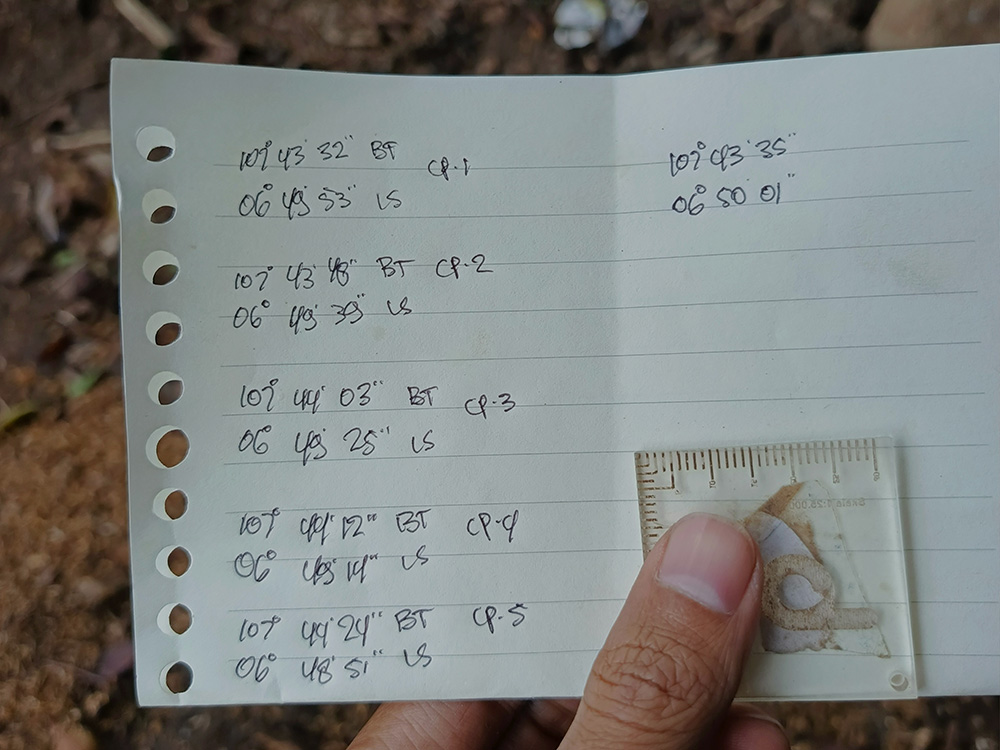 107° 43' 32" BT CP-1
06° 49' 53" LS
107° 43' 48" BT CP-2
06° 49' 39" LS
107° 44' 03" BT CP-3
06° 49' 25" LS
107° 44' 12" BT CP-4
06° 49' 14" LS
107° 44' 24" BT CP-5
06° 48' 51" LS
107° 43' 35"
06° 50' 01"